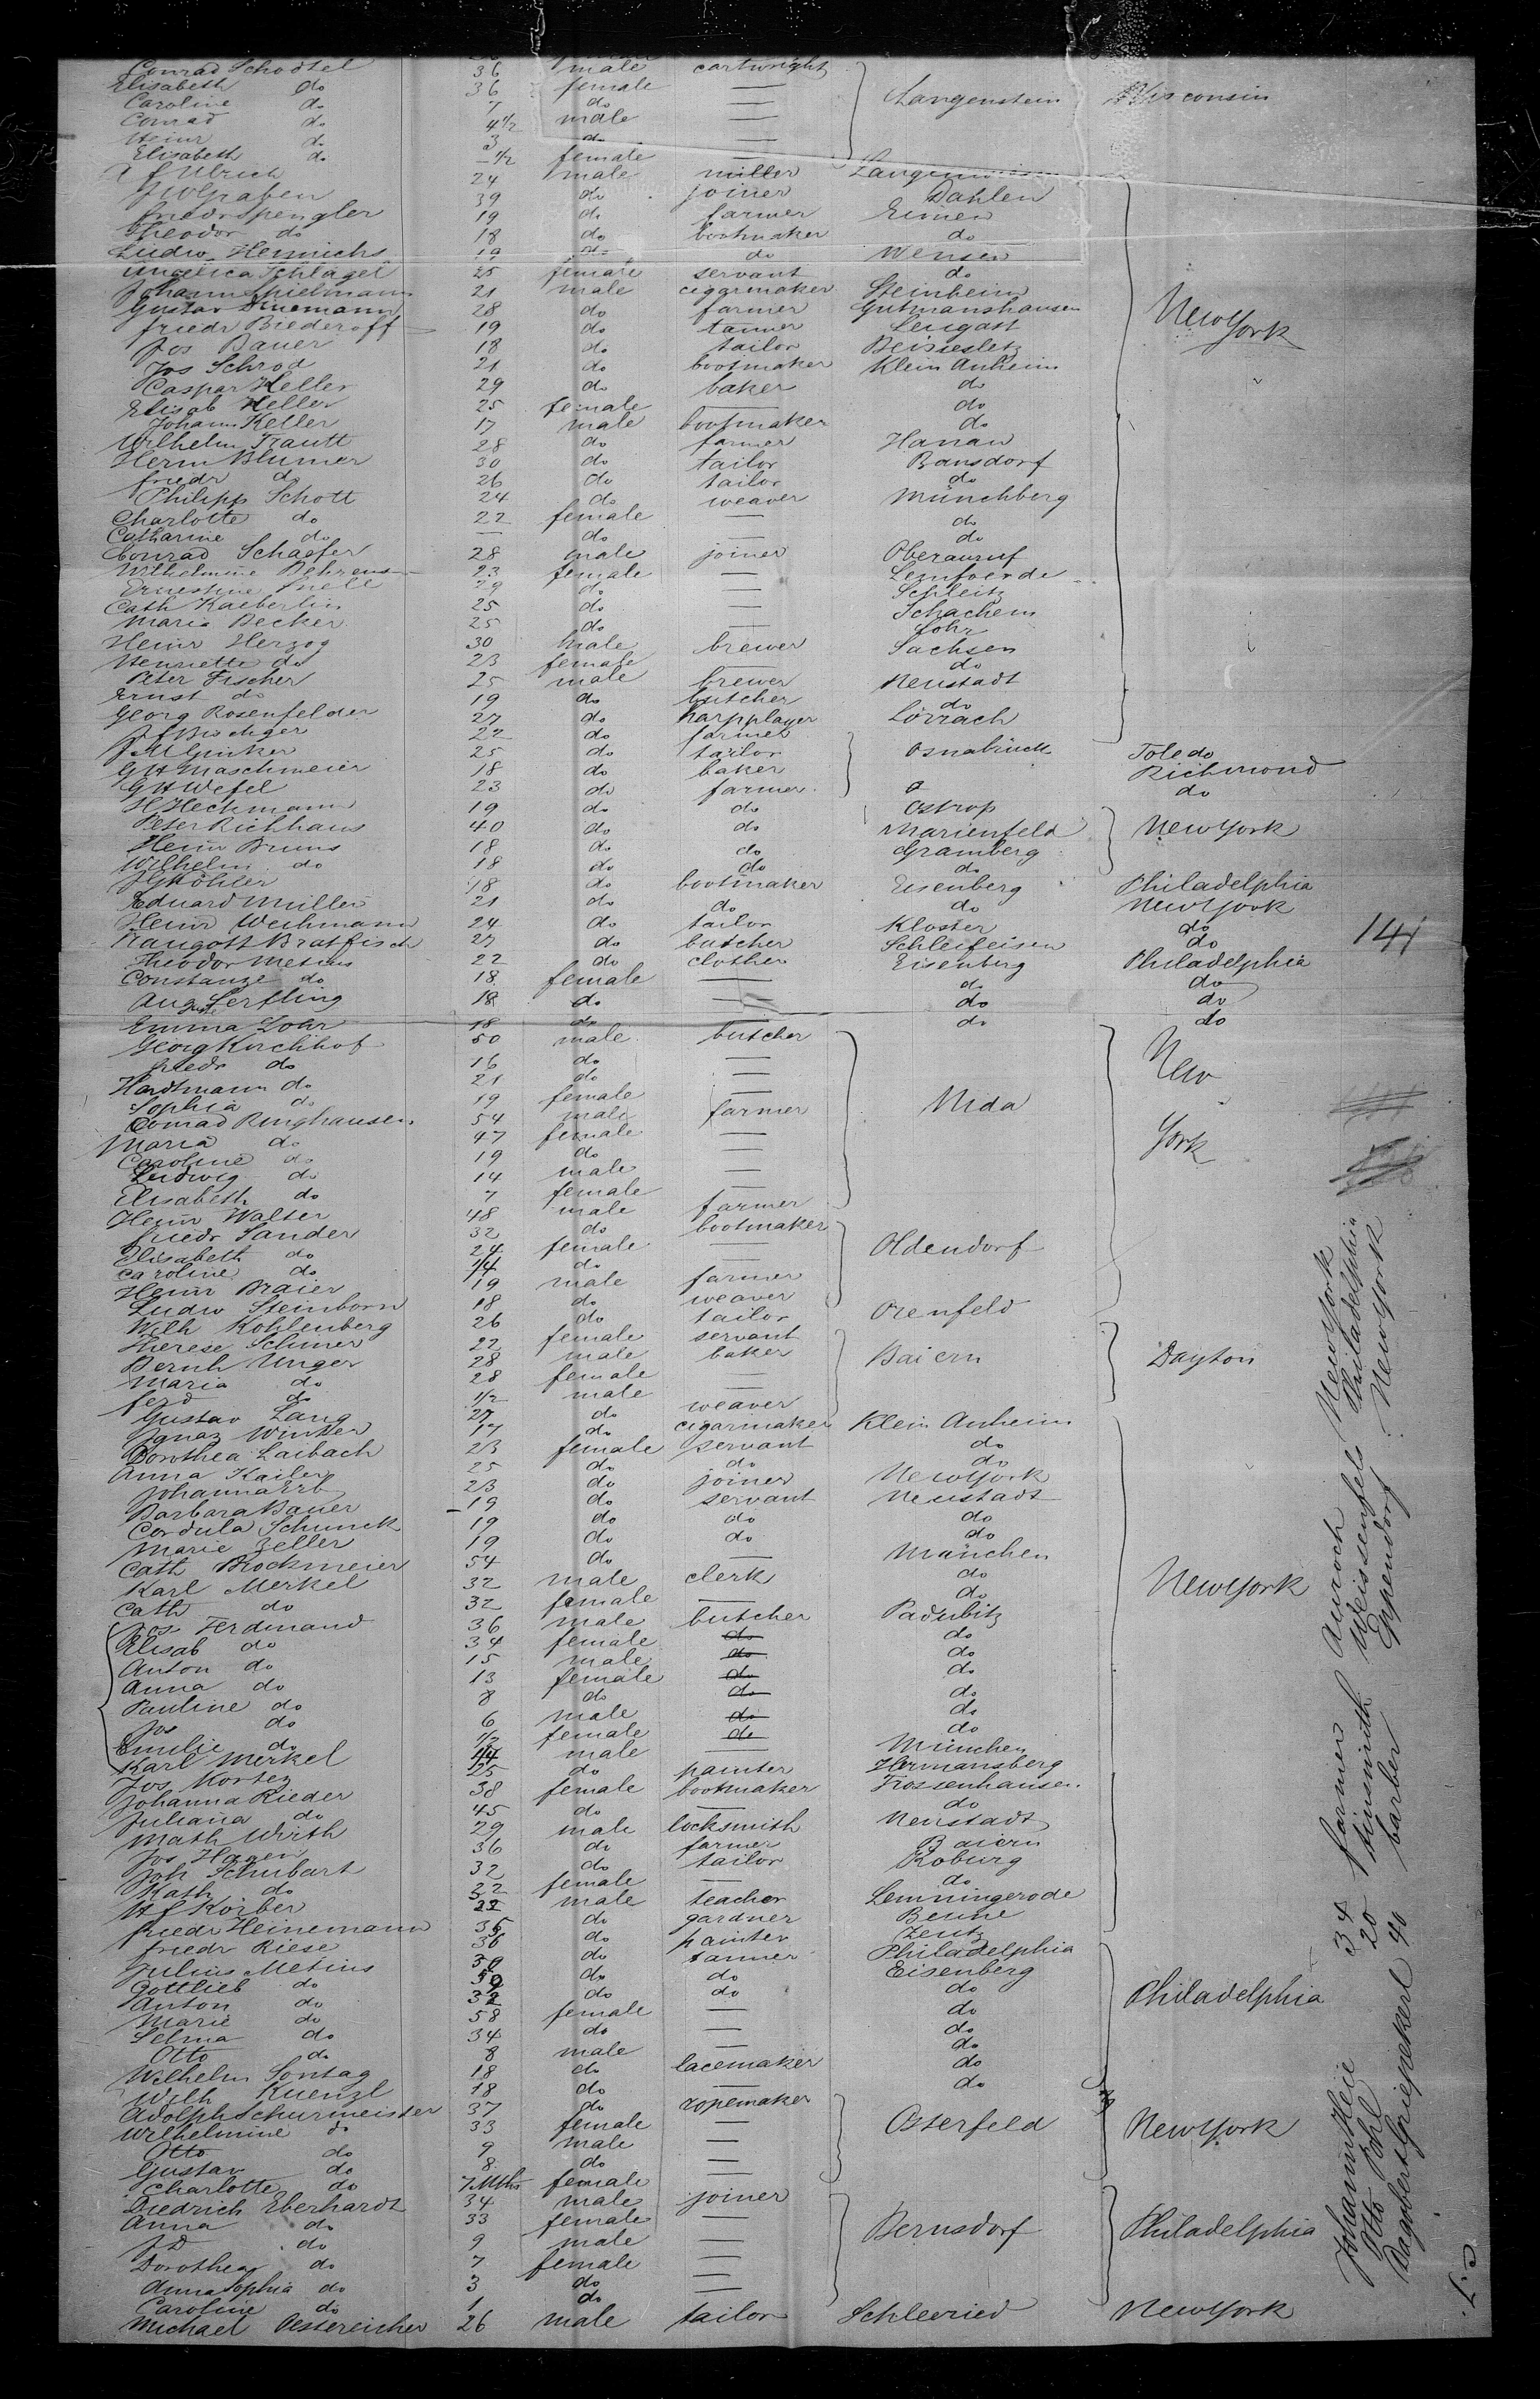 Conrad Schodtel 36 male cartwright
Elisabeth do 36 female — Langenstein Wisconsin
Caroline do 7 do —
Conrad do 4½ male —
Heinr do 3 do —
Elisabeth do ½ female —
A f Ulrich 24 male miller
J W Graben 39 do joiner Dahlen
friedr Spengler 19 do farmer Eimen
Theodor do 18 do bootmaker do
Ludw. Heinrichs 19 do do Wensen
Angelica Schlagel 25 female servant do
Johann Spielmann 21 male cigarmaker Steinheim
Gustav 28 do farmer Gutmanshausen New York
friedr Biederoff 19 do tanner Lengast
Jos Bauer 18 do tailor
Jos Schrod 21 do bootmaker Klein Anheim
Caspar Keller 29 do baker do
Elisab Keller 25 female — do
Johann Keller 17 male bootmaker do
Wilhelm Trautt 28 do farmer Hanau
Herm Blumer 30 do tailor Bansdorf
friedr do 26 do tailor do
Philipp Schott 24 do weaver Münchberg
Charlotte do 22 female — do
Catharine do — do — do
Conrad Schaefer 28 male joiner Oberauruf
Wilhelmine Behrens 23 female — Lemfoerde
Ernestine 29 do — Schleitz
Cath Kaeberlin 25 do — Schachem
Maria Becker 25 do — Lohr
Heinr Herzog 30 male brewer Sachsen
Henriette do 23 female — do
Peter Fischer 25 male brewer Neustadt
Ernst do 19 do butcher do
Georg Rosenfelder 27 do harpplayer Lörrach
22 do farmer
25 do tailor Osnabrück Toledo
G H Maschmeier 18 do baker Richmond
G H Wefel 23 do farmer do
H Heckmann 19 do do Ostrop
Peter Richhaus 40 do do Marienfeld New York
Heinr Bruns 18 do do Gramberg
Wilhelm do 18 do do do
J G Köhler 18 do bootmaker Eisenberg Philadelphia
Eduard Müller 21 do do do New York
Heinr Weihmann 24 do tailor Kloster do
Traugott Bratfisch 27 do butcher Schleifeisen do
Theodor Metius 22 do clother Eisenberg Philadelphia
Constanze do 18 female — do do
Auguste Serfling 18 do — do do
Emma Zohr 18 do do do
Georg Kirchhof 50 male butcher New
friedr do 16 do —
Hardtmann do 21 do —
Sophia do 19 female —
Conrad Ringhausen 54 male farmer Nida
Maria do 47 female — York
Caroline do 19 do —
Ludwig do 14 male —
Elisabeth do 7 female —
Heinr Walter 48 male farmer
friedr Sander 32 do bootmaker
Elisabeth do 24 female — Oldendorf
Caroline do 1/4 do —
Heinr Braier 19 male farmer
Ludw Steinborn 18 do weaver
Wilh Kohlenberg 26 do tailor Orenfeld
Therese Schner 22 female servant
Bernh Unger 28 male baker Baiern Dayton
Maria do 28 female —
ferd do 1/2 male —
Gustav Lang 27 do weaver
Ignaz Winkler 17 do cigarmaker Klein Anheim
Dorothea Laibach 23 female servant do
Anna Kailer 25 do do do
Johanna Erb 23 do joiner New York
Barbara Bauer 19 do servant Neustadt
Cordula Schunck 19 do do do
Marie Zeller 19 do do do
Cath Brockmeier 54 do — München
Karl Merkel 32 male clerk do New York
Cath do 32 female — do
Jos Ferdinand 36 male butcher Padubitz
Elisab do 34 female do do
Anton do 15 male do do
Anna do 13 female do do
Pauline do 8 do do do
Jos do 6 male do do
Emilie do 1/2 female do do
Karl Merkel 1/4 male — München
Jos Mortez 25 do painter Hermansberg
Johanna Rieder 38 female bootmaker Trossenhausen
Juliana do 45 do — do
Math Wirth 29 male locksmith Neustadt
Jos Hagen 36 do farmer Baiern
Joh Schubart 32 do tailor Koburg
Kath do 22 female — do
H f Körber 32 male teacher Lemmingerode
friedr Heinemann 35 do gardner Beune
friedr Riese 36 do painter Zeutz
Julius Metius do tanner Philadelphia
Gottlieb do do do Eisenberg
Anton do 32 do do do Philadelphia
Marie do 58 female — do
Selma do 34 do — do
Otto do 8 male do
Wilhelm Sontag 18 do lacemaker do
Wilh Kuenzl 18 do — do
Adolph Schurmeister 37 do ropemaker
Wilhelmine do 33 female — Osterfeld New York
Otto do 9 male —
Gustav do 8 do —
Charlotte do 7 Mths female —
Diedrich Eberhardt 34 male joiner
Anna do 33 female —
J D do 9 male — Bernsdorf Philadelphia
Dorothea do 7 female —
Anna Sophia do 3 do —
Caroline do 1 do
Michael Oestereicher 26 male tailor Schleeried New York
141
Johann Heie 34 farmer Auroch New York
Otto Pohl 20 tinsmith Weissenfels Philadelphia
Dagobert Griepekerl 40 barber Eppendorf New York